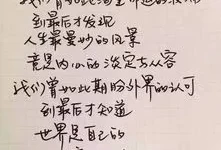 到最后才发现
人生最曼妙的风景
竟是内心的淡定与从容
我们曾如此期盼外界的认可
到最后才知道
世界是自己的